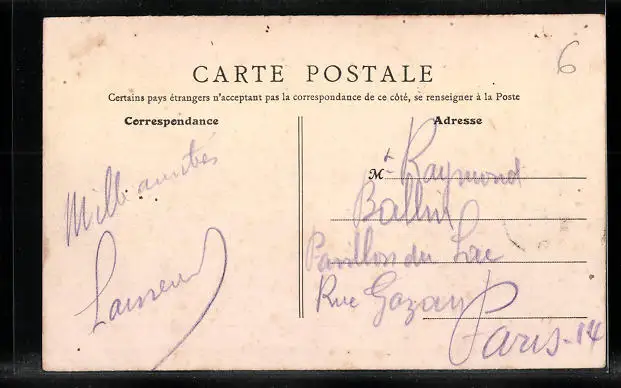 6
CARTE POSTALE
Certains pays étrangers n'acceptent pas la correspondance de ce côté, se renseigner à la Poste
Correspondance
Mille amitiés
Adresse
Mr Raymond
Pavillon du Lac
Rue Gazan
Paris-14